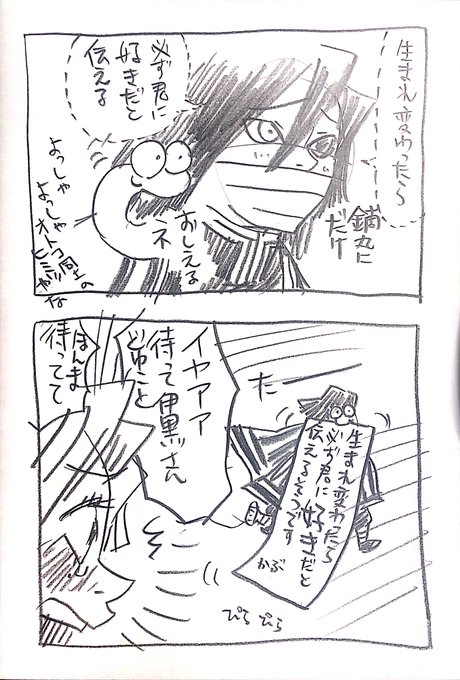 生まれ変わったら
必ず君に
好きだと
伝える
鏑丸に
だけ
おしえる
ネ
よっしゃ
よっしゃ
オトコ同士の
ヒミツやな
た
生まれ変わたら
必ず君に好きだと
伝えるそうです
かぶ
イヤアア
待って伊黒さん
どゆこと
ほんま
待ってて
ぴら ぴら